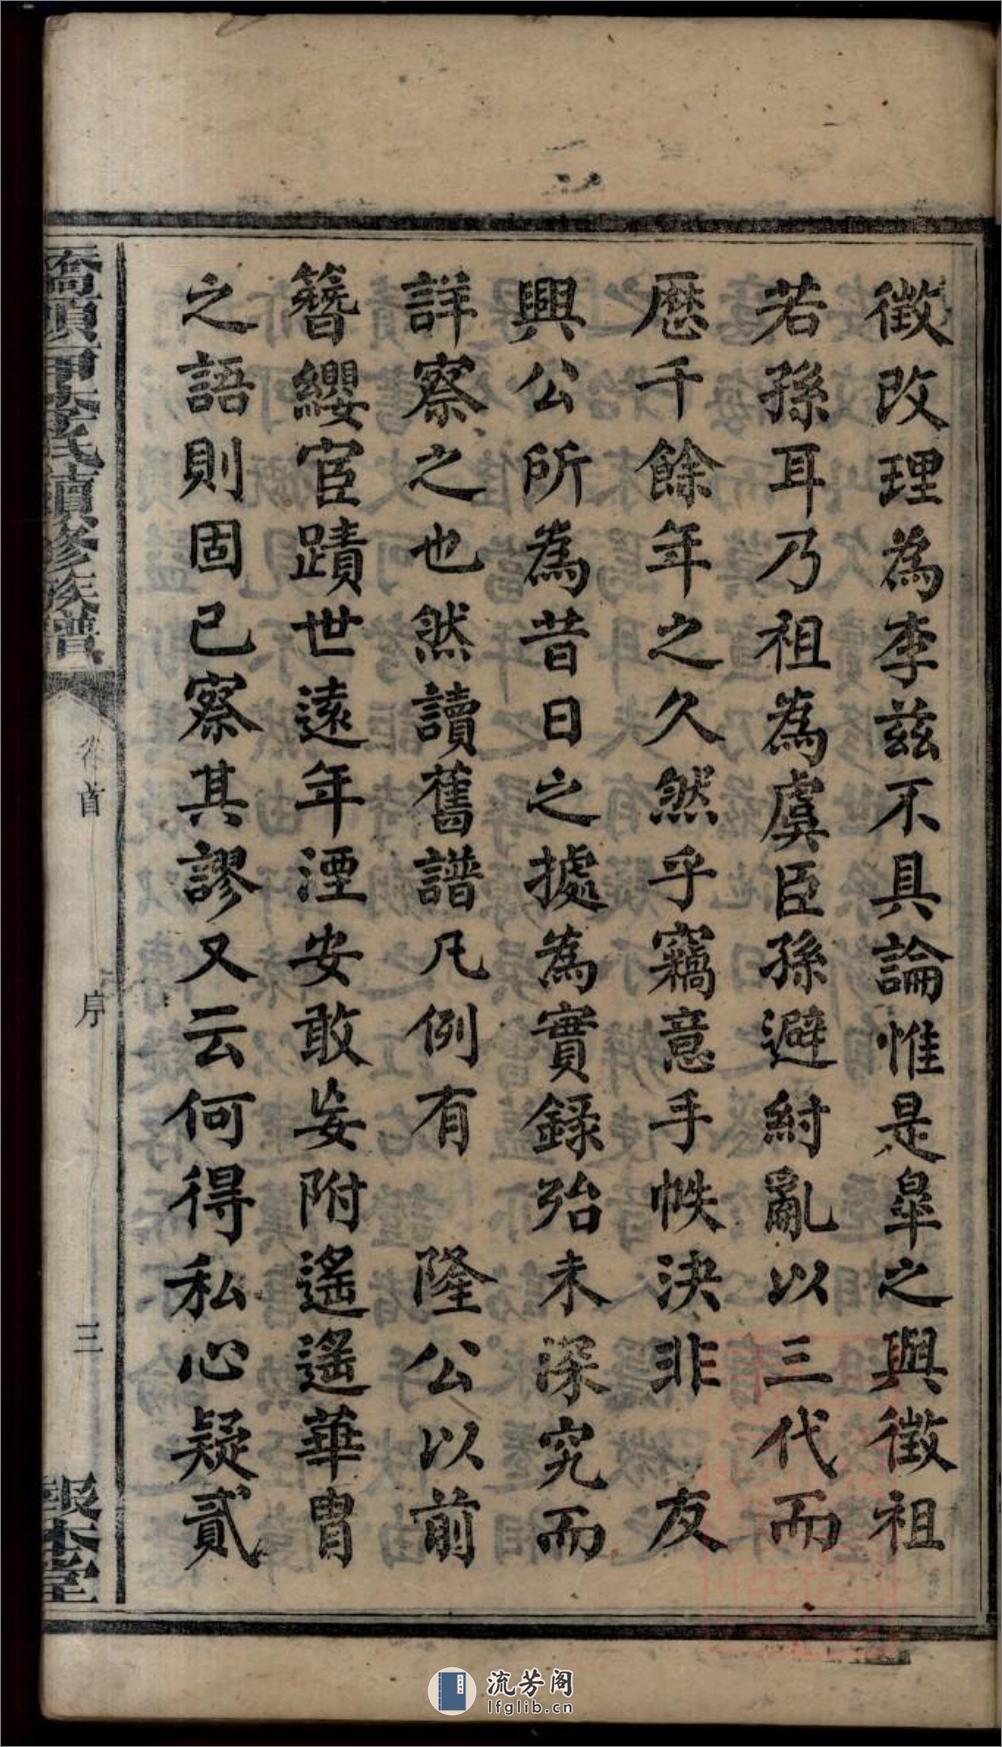 徵改理為李茲不具論惟是皐之與徵祖
若孫耳乃祖為虞臣孫避紂亂以三代而
歷千餘年之久然乎竊意手帙決非　友
興公所為昔日之據為實錄殆未深究而
詳察之也然讀舊譜凡例有　隆公以前
簪纓宦蹟世遠年湮安敢妄附遙遙華胄
之語則固已察其謬又云何得私心疑貳
李氏續修族譜
卷首
序
三
報本堂
流芳阁
lfglib.cn